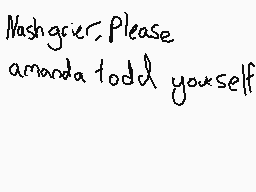 Nashgrier, Please
amanda todd yourself